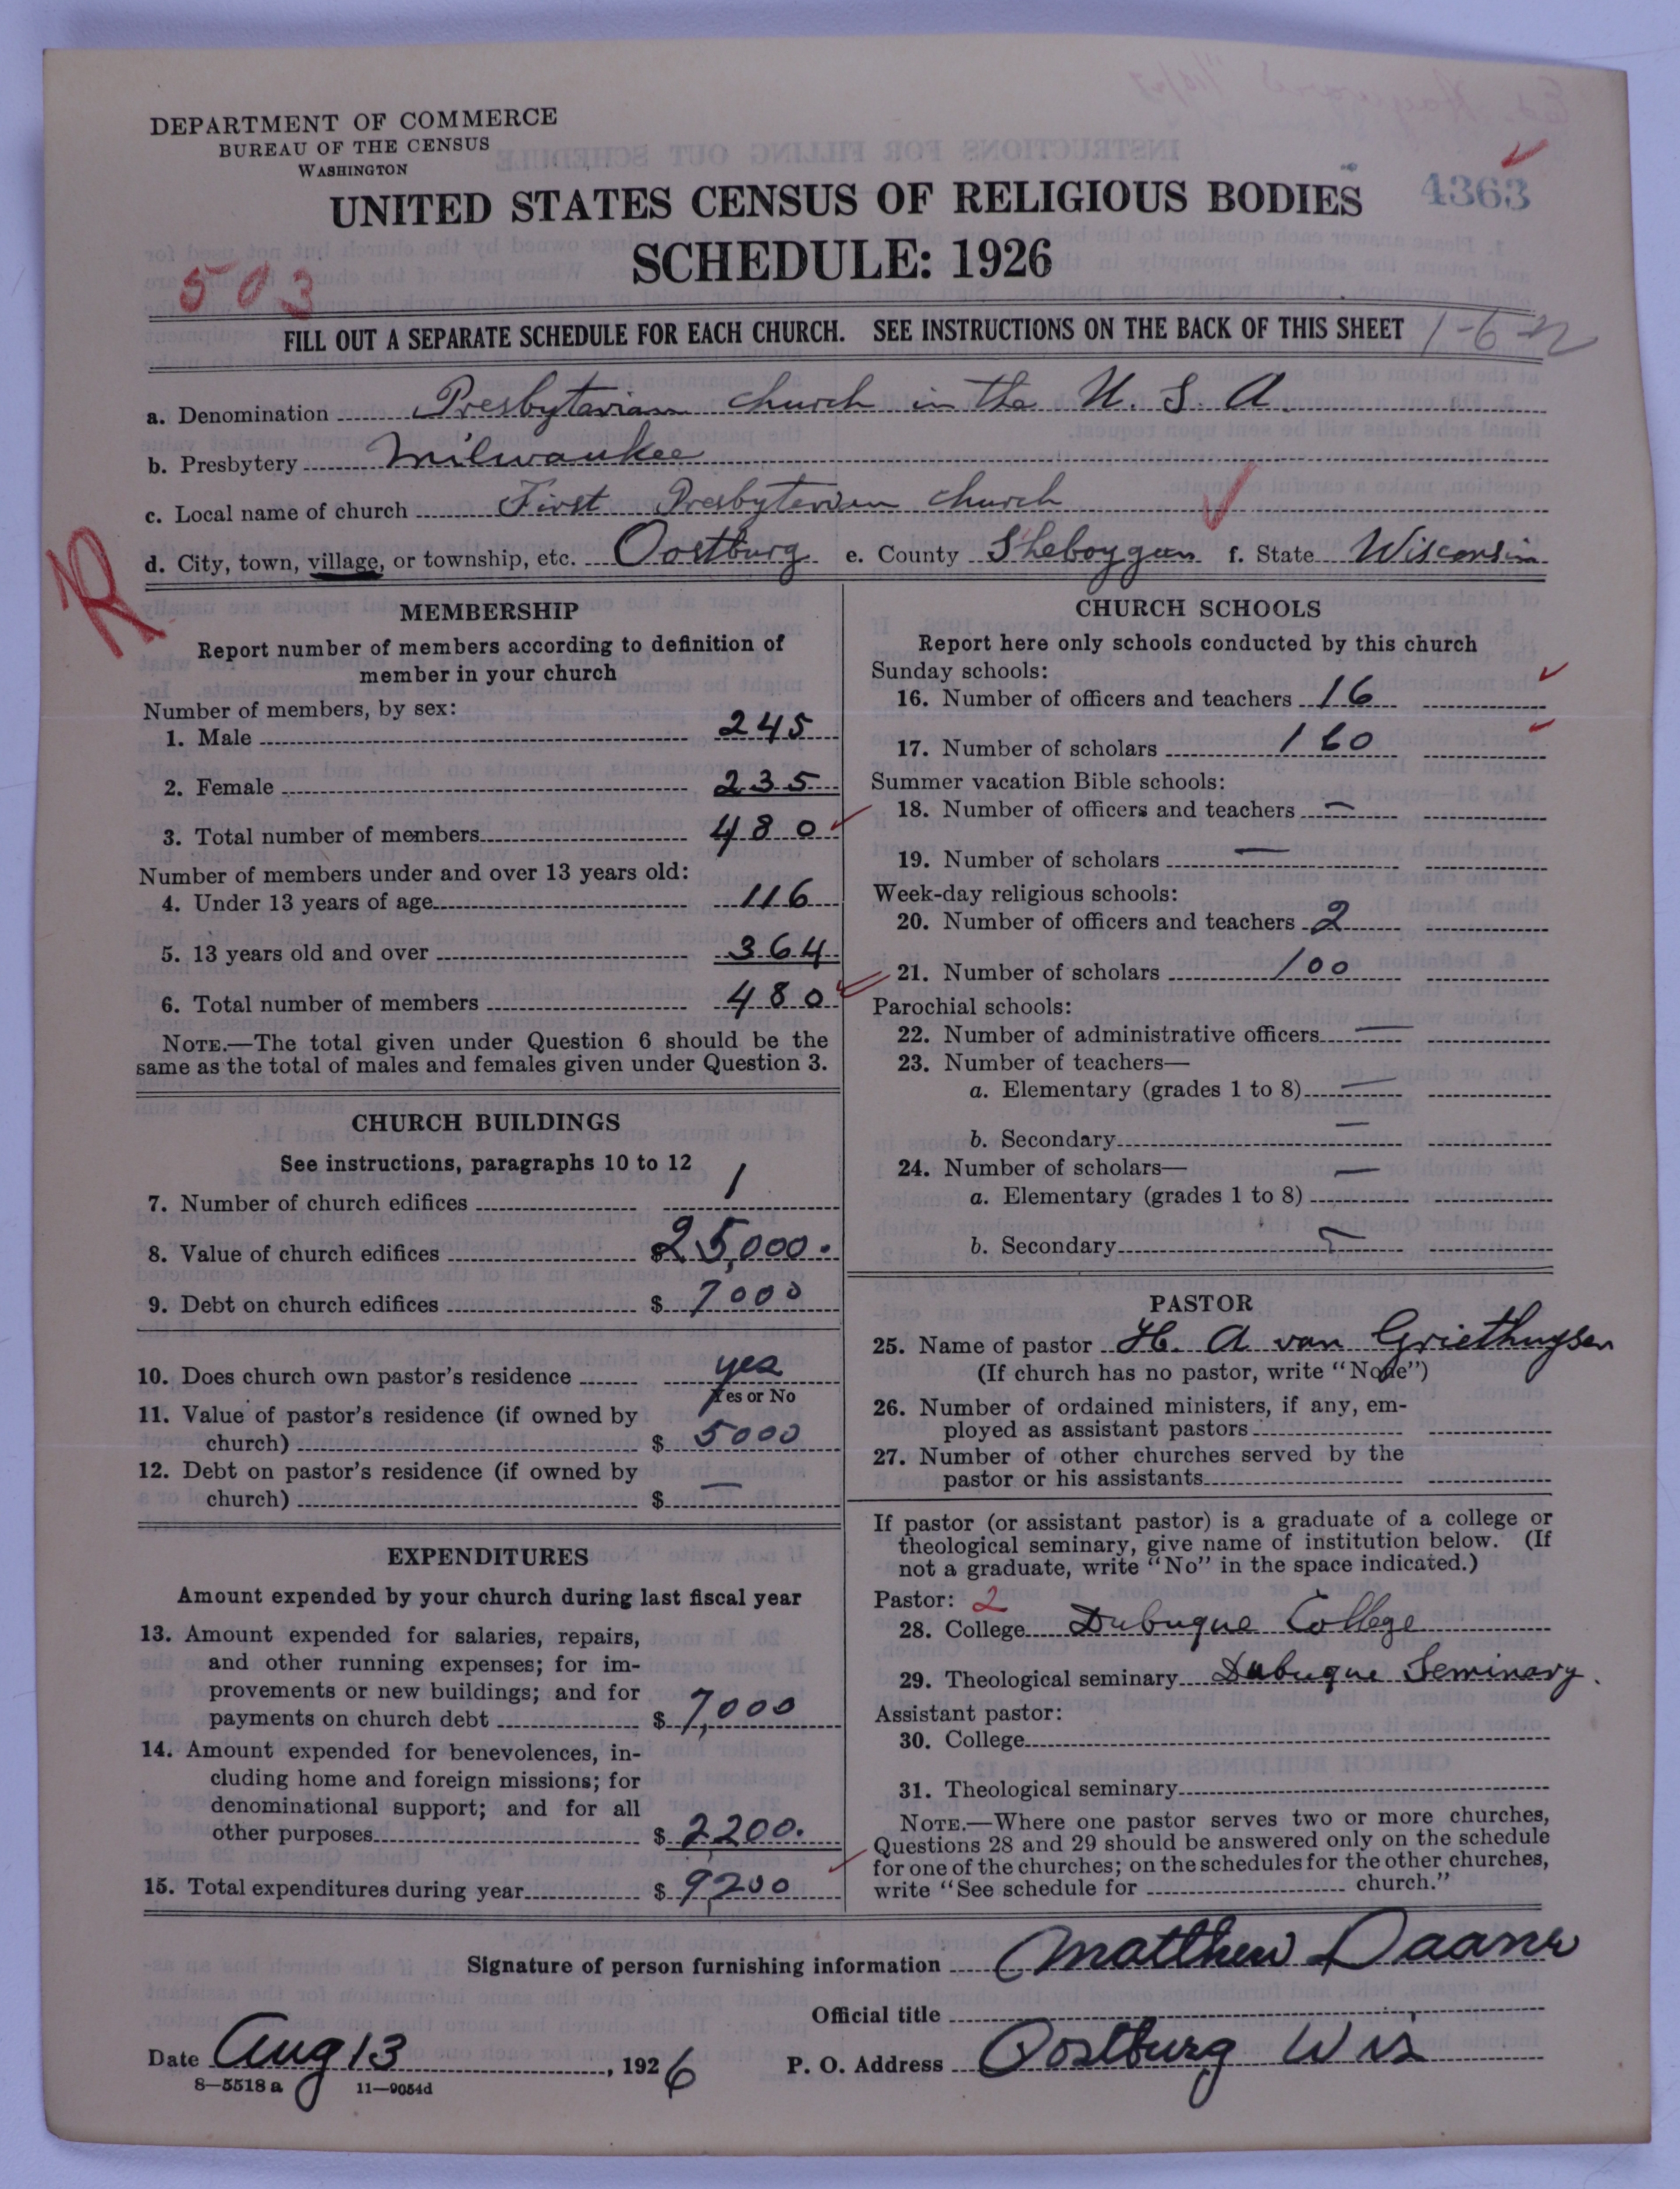 DEPARTMENT OF COMMERCE
BUREAU OF THE CENSUS
WASHINGTON
UNITED STATES CENSUS OF RELIGIOUS BODIES
4363
SCHEDULE: 1926
503
FILL OUT A SEPARATE SCHEDULE FOR EACH CHURCH. SEE INSTRUCTIONS ON THE BACK OF THIS SHEET
a. Denomination Presbyterian church in the U. S. A.
b. Presbytery Milwaukee
c. Local name of church First Presbyterian church
d. City, town, village, or township, etc. Oostburg e. County Sheboygan f. State Wisconsin
R
MEMBERSHIP
Report number of members according to definition of
member in your church
Number of members, by sex:
1. Male 245
2. Female 235
3. Total number of members 480
Number of members under and over 13 years old:
4. Under 13 years of age 116
5. 13 years old and over 364
6. Total number of members 480
NOTE.—The total given under Question 6 should be the
same as the total of males and females given under Question 3.
CHURCH BUILDINGS
See instructions, paragraphs 10 to 12
7. Number of church edifices 1
8. Value of church edifices $25,000.
9. Debt on church edifices $ 7000
10. Does church own pastor's residence yes
Yes or No
11. Value of pastor's residence (if owned by
church) $ 5000
12. Debt on pastor's residence (if owned by
church) $ —
EXPENDITURES
Amount expended by your church during last fiscal year
13. Amount expended for salaries, repairs,
and other running expenses; for im-
provements or new buildings; and for
payments on church debt $ 7,000
14. Amount expended for benevolences, in-
cluding home and foreign missions; for
denominational support; and for all
other purposes $ 2200.
15. Total expenditures during year $ 9,200
CHURCH SCHOOLS
Report here only schools conducted by this church
Sunday schools:
16. Number of officers and teachers 16
17. Number of scholars 160
Summer vacation Bible schools:
18. Number of officers and teachers —
19. Number of scholars —
Week-day religious schools:
20. Number of officers and teachers 2
21. Number of scholars 100
Parochial schools:
22. Number of administrative officers —
23. Number of teachers—
a. Elementary (grades 1 to 8) —
b. Secondary —
24. Number of scholars— —
a. Elementary (grades 1 to 8)
b. Secondary —
PASTOR
25. Name of pastor H. A van Griethuysen
(If church has no pastor, write "None")
26. Number of ordained ministers, if any, em-
ployed as assistant pastors
27. Number of other churches served by the
pastor or his assistants
If pastor (or assistant pastor) is a graduate of a college or
theological seminary, give name of institution below. (If
not a graduate, write "No" in the space indicated.)
Pastor: 2
28. College Dubuque College
29. Theological seminary Dubuque Seminary.
Assistant pastor:
30. College
31. Theological seminary
NOTE.—Where one pastor serves two or more churches,
Questions 28 and 29 should be answered only on the schedule
for one of the churches; on the schedules for the other churches,
write "See schedule for church."
Signature of person furnishing information Matthew Daane
Official title
Date Aug 13, 1926 P. O. Address Oostburg Wis
8—5518 a 11—9054d